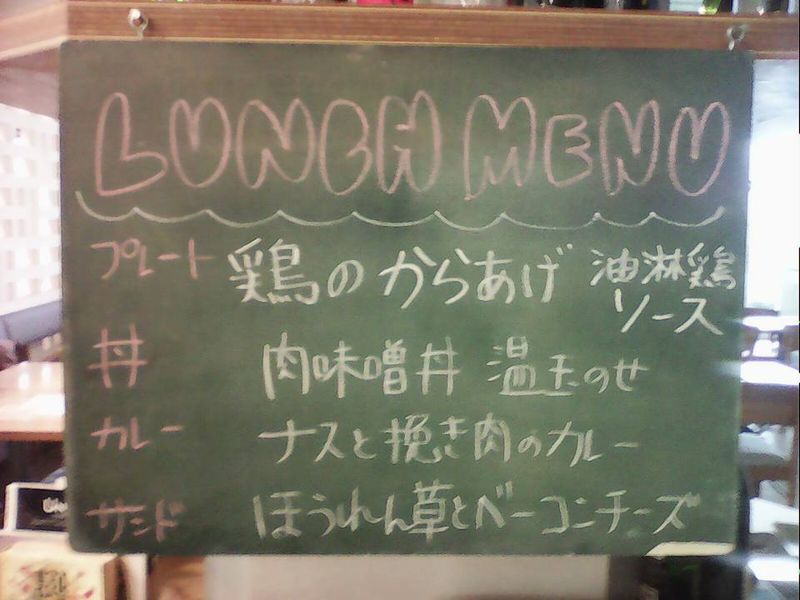 LUNCH MENU
プレート 鶏のからあげ 油淋鶏
ソース
丼 肉味噌丼 温玉のせ
カレー ナスと挽き肉のカレー
サンド ほうれん草とベーコンチーズ